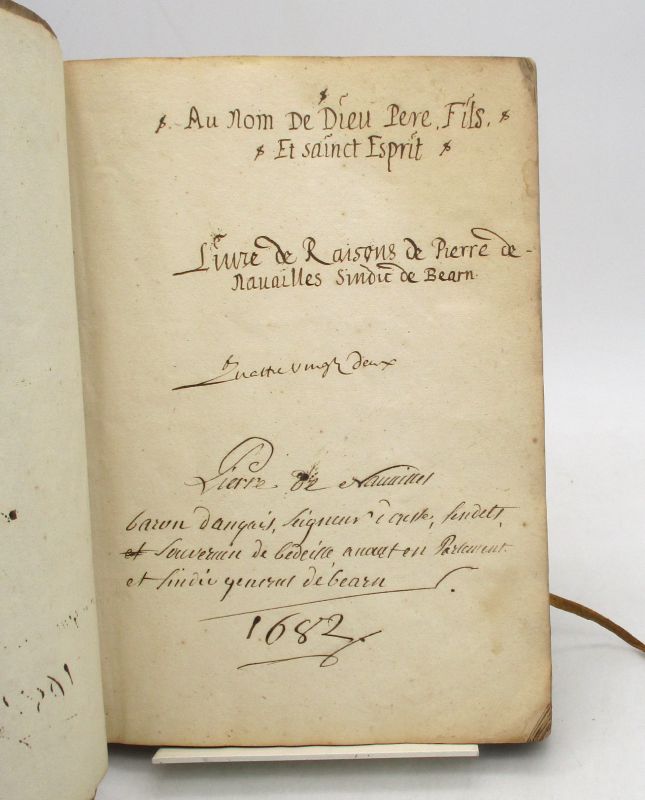 Au Nom De Dieu Pere, Fils,
Et sainct Esprit
Livre de Raisons de Pierre de
Navailles Sindic de Bearn.
Quattre vingt deux
Pierre de Navailles
baron dangais, seigneur
et souverain de bedeille avocat en Parlement
et sindic general de bearn
1682